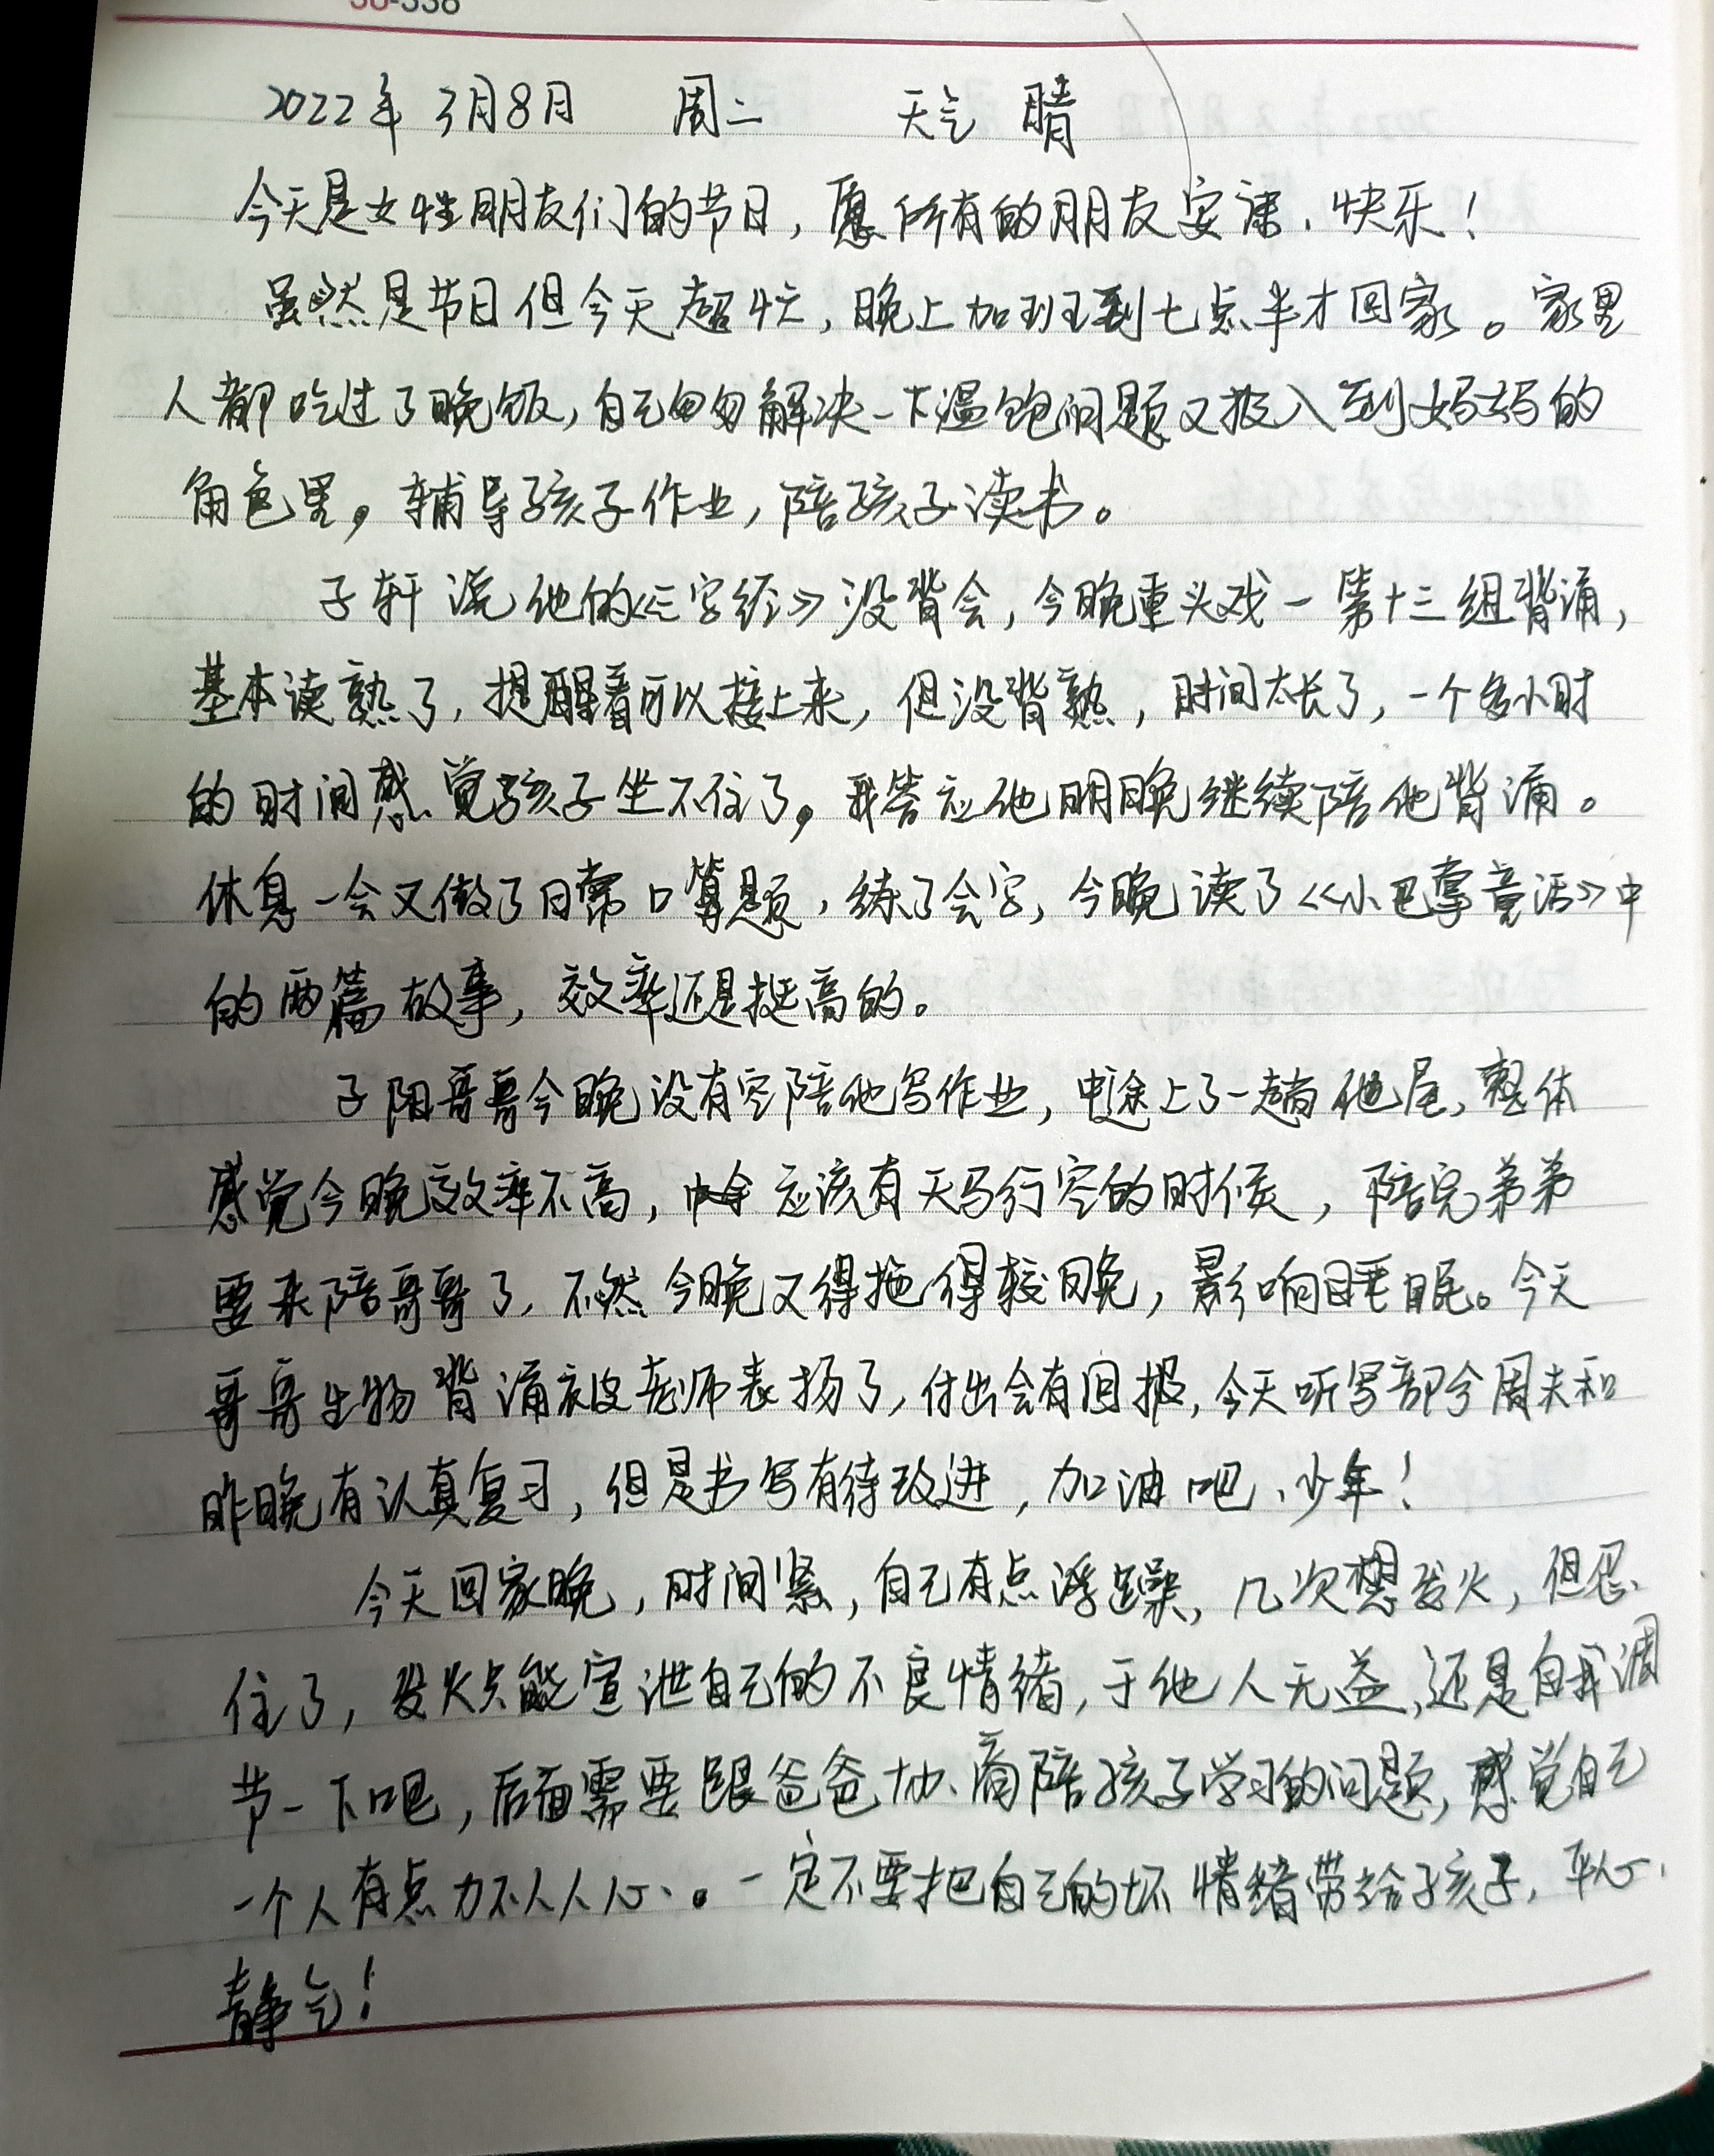 36-338
2022年3月8日 周二 天气 晴
今天是女性朋友们的节日,愿所有的朋友安康、快乐!
虽然是节日但今天超忙,晚上加班到七点半才回家。家里
人都吃过了晚饭,自己匆匆解决一下温饱问题又投入到妈妈的
角色里,辅导孩子作业,陪孩子读书。
子轩说他的《三字经》没背会,今晚重头戏一第十三组背诵,
基本读熟了,提醒着可以接上来,但没背熟,时间太长了,一个多小时
的时间感觉孩子坐不住了,我答应他明晚继续陪他背诵。
休息一会又做了日常口算题,练了会字,今晚读了《小巴掌童话》中
的两篇故事,效率还是挺高的。
子阳哥哥今晚没有空陪他写作业,中途上了一趟他屋,整体
感觉今晚效率不高,应该有天马行空的时候,陪完弟弟
要来陪哥哥了,不然今晚又得拖得较晚,影响睡眠。今天
哥哥生物背诵被老师表扬了,付出会有回报,今天听写部分周末和
昨晚有认真复习,但是书写有待改进,加油吧、少年!
今天回家晚,时间紧,自己有点浮躁,几次想发火,但忍
住了,发火只能宣泄自己的不良情绪,于他人无益,还是自我调
节一下吧,后面需要跟爸爸协商陪孩子学习的问题,感觉自己
一个人有点力不从心。一定不要把自己的坏情绪带给孩子,平心
静气!